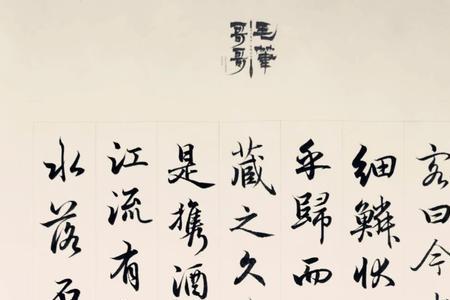 毛筆
哥哥
客曰今
細鱗狀
乎歸而
藏之久
是攜酒
江流有
水落石